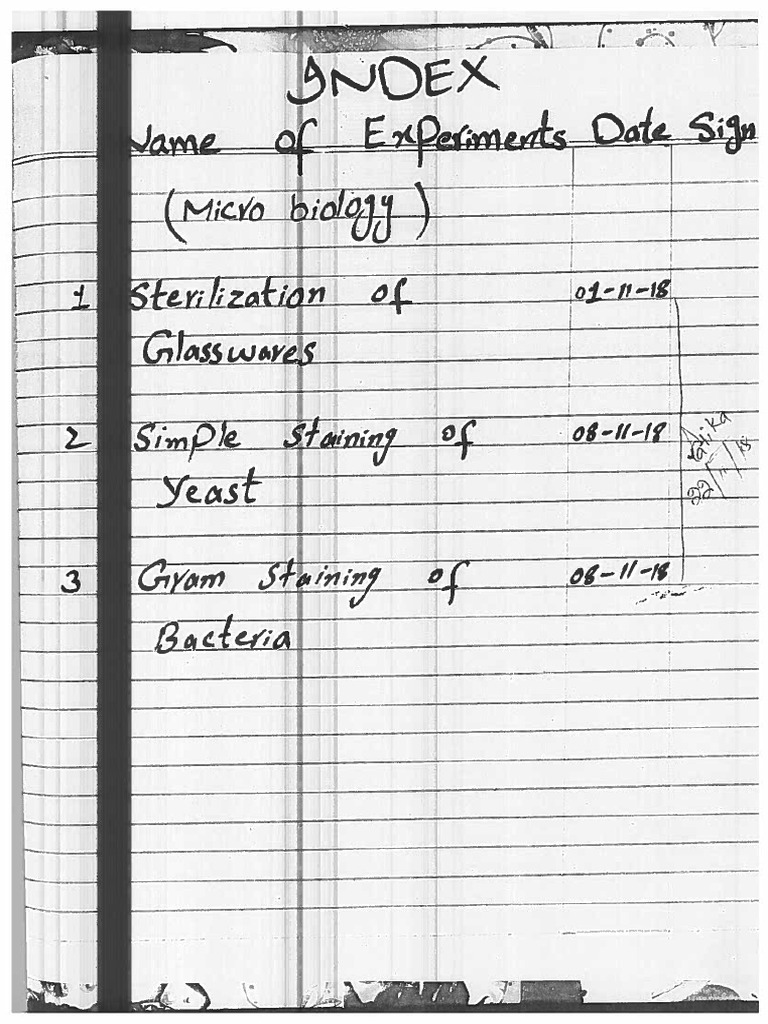 INDEX
Name of Experiments Date Sign
(Micro biology)
1 Sterilization of 01-11-18
Glasswares
2 Simple Staining of 08-11-18
Yeast
3 Gram Staining of 08-11-18
Bacteria
22/11/18